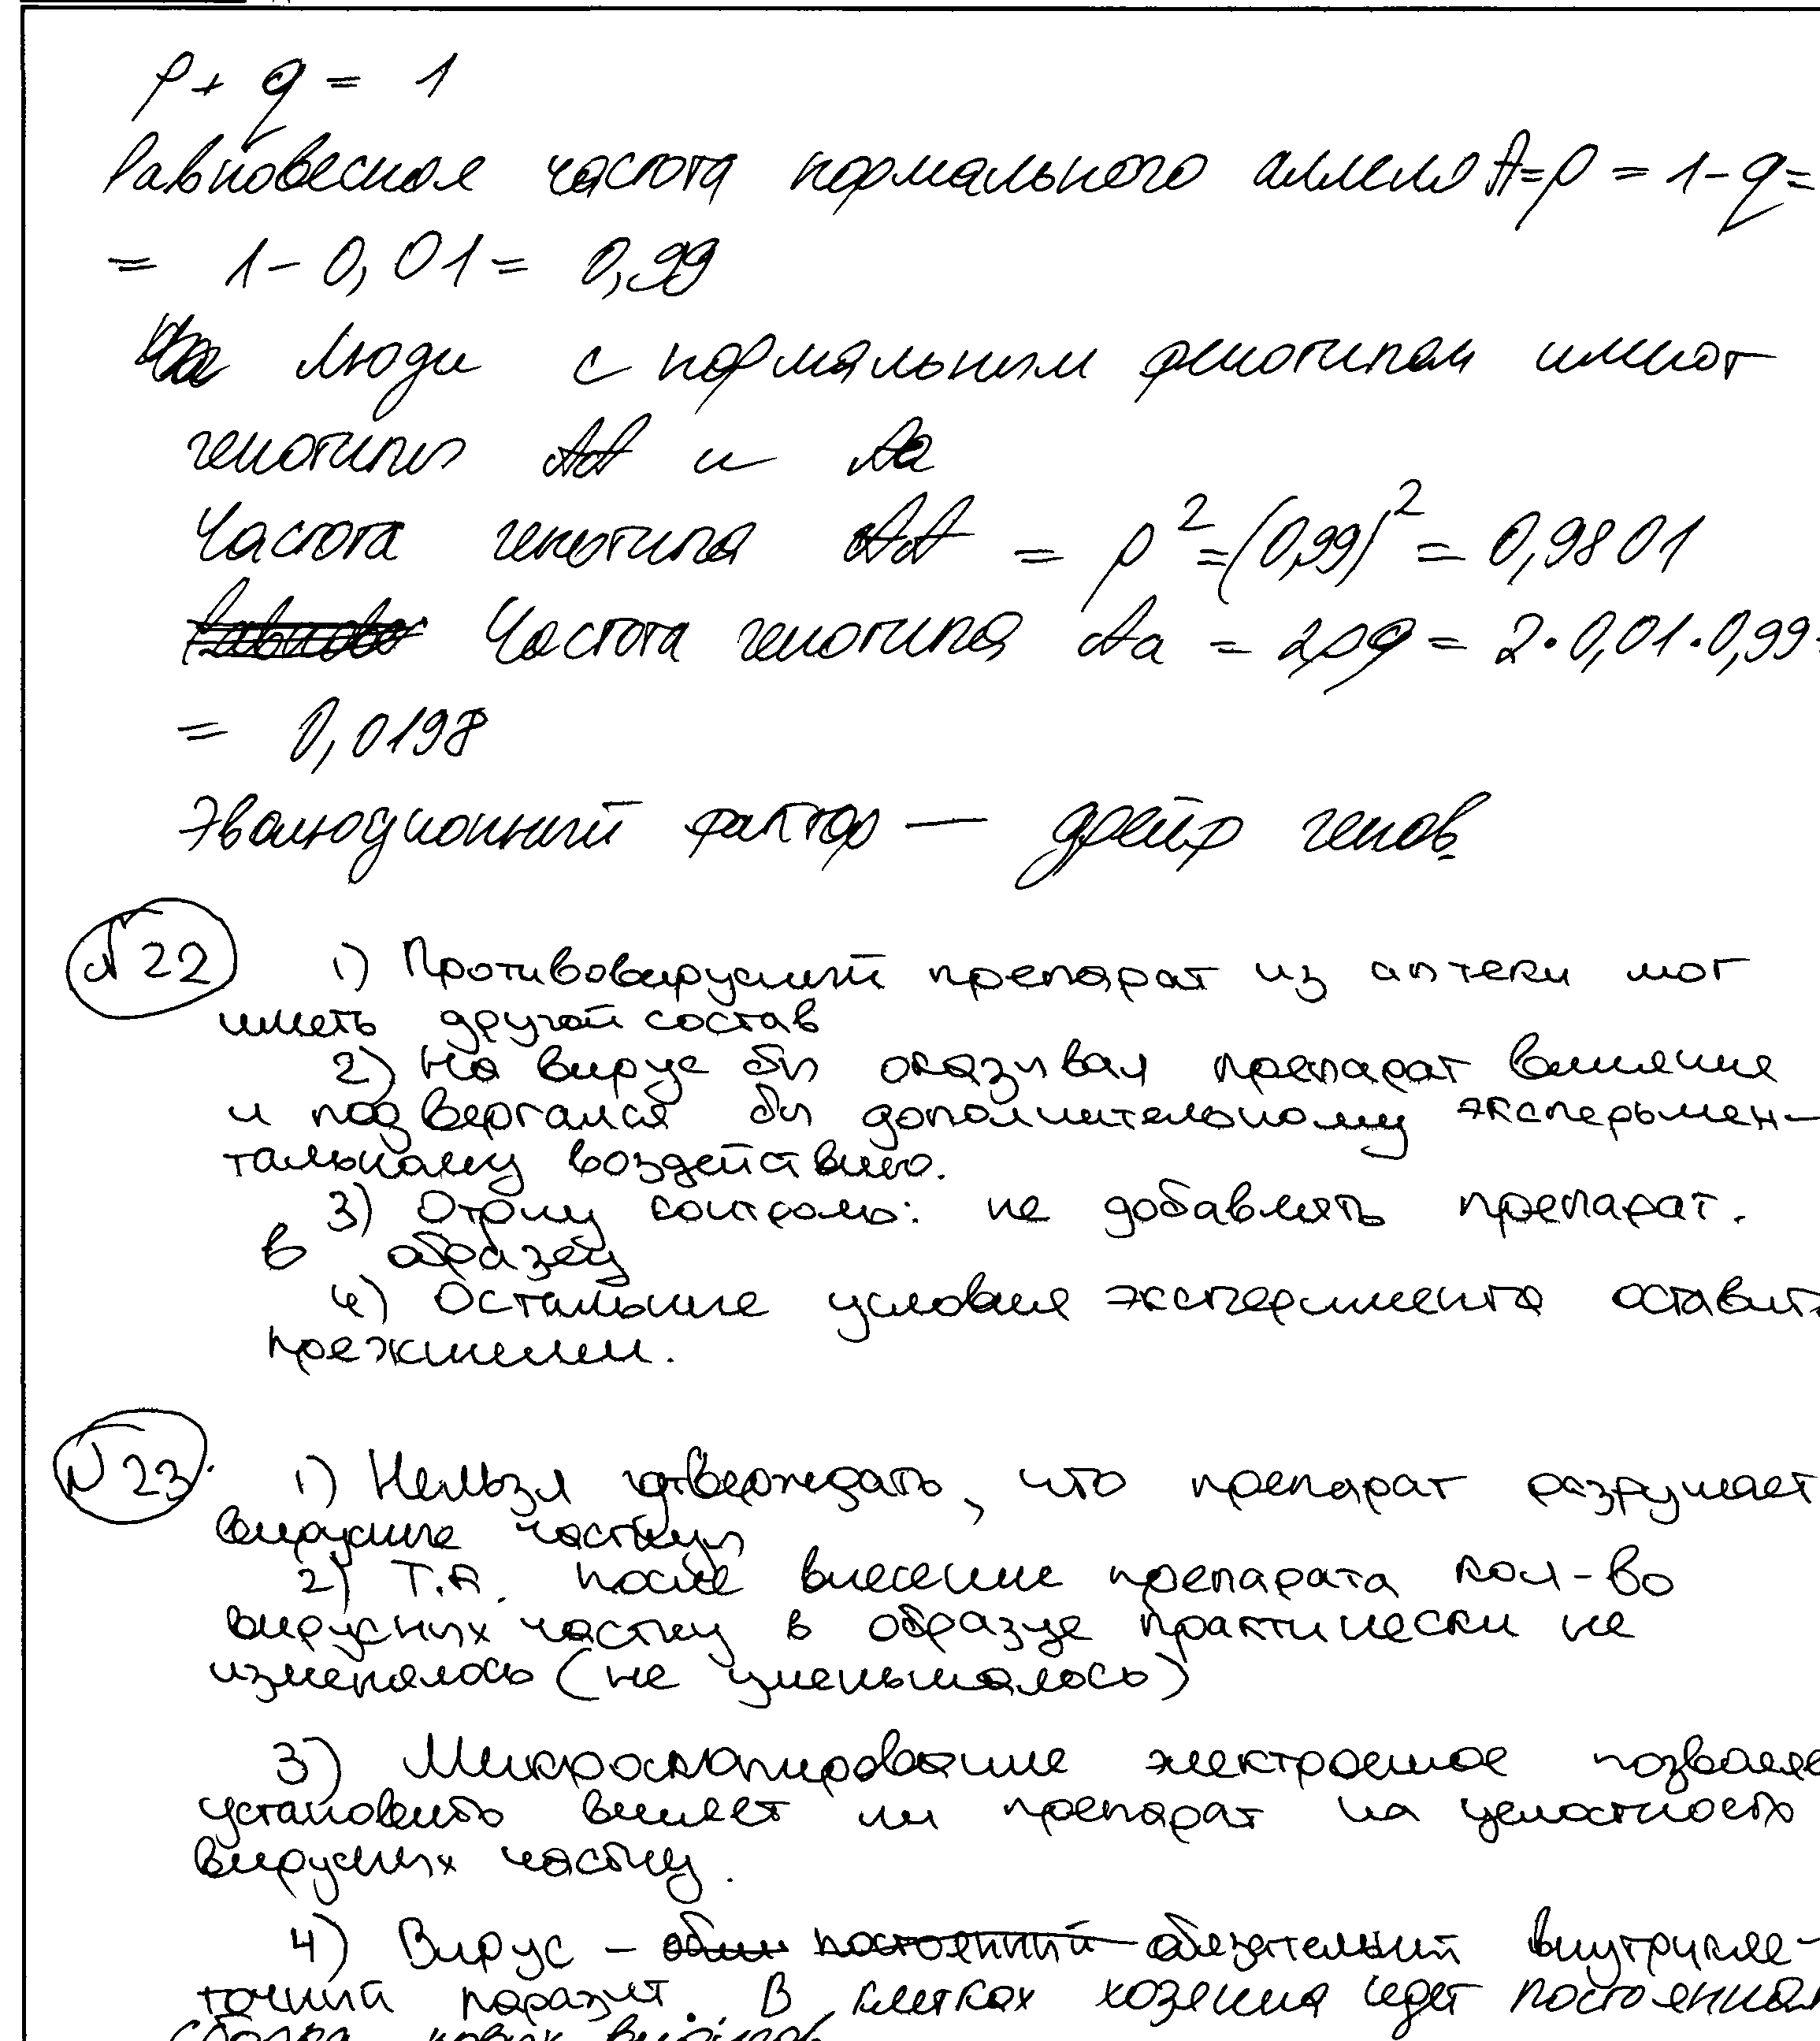 p + q = 1
Равновесная частота нормального аллеля A = p = 1 - q =
= 1 - 0,01 = 0,99
Люди с нормальным фенотипом имеют
генотипы AA и Aa
Частота генотипа AA = p² = (0,99)² = 0,9801
Частота генотипа Aa = 2pq = 2 · 0,01 · 0,99 =
= 0,0198
Эволюционный фактор — дрейф генов.
№22 1) Противовирусный препарат из аптеки мог
иметь другой состав
2) На вирус бы оказывал препарат влияние
и подвергался бы дополнительному эксперьмен-
тальному воздействию.
3) Отриц контроль: не добавлять препарат.
в образец
4) Остальные условия эксперимента оставить
прежними.
№23. 1) Нельзя утверждать, что препарат разрушает
вирусные частицы
2) Т.к. после внесение препарата кол-во
вирусных частиц в образце практически не
изменялось (не уменьшалось)
3) Микроскопирование электронное позволяе
установить влияет ли препарат на целостность
вирусных частиц.
4) Вирус - обязательный внутрикле-
точный паразит. В клетках хозяина идет постоянная
сборка новых вирионов